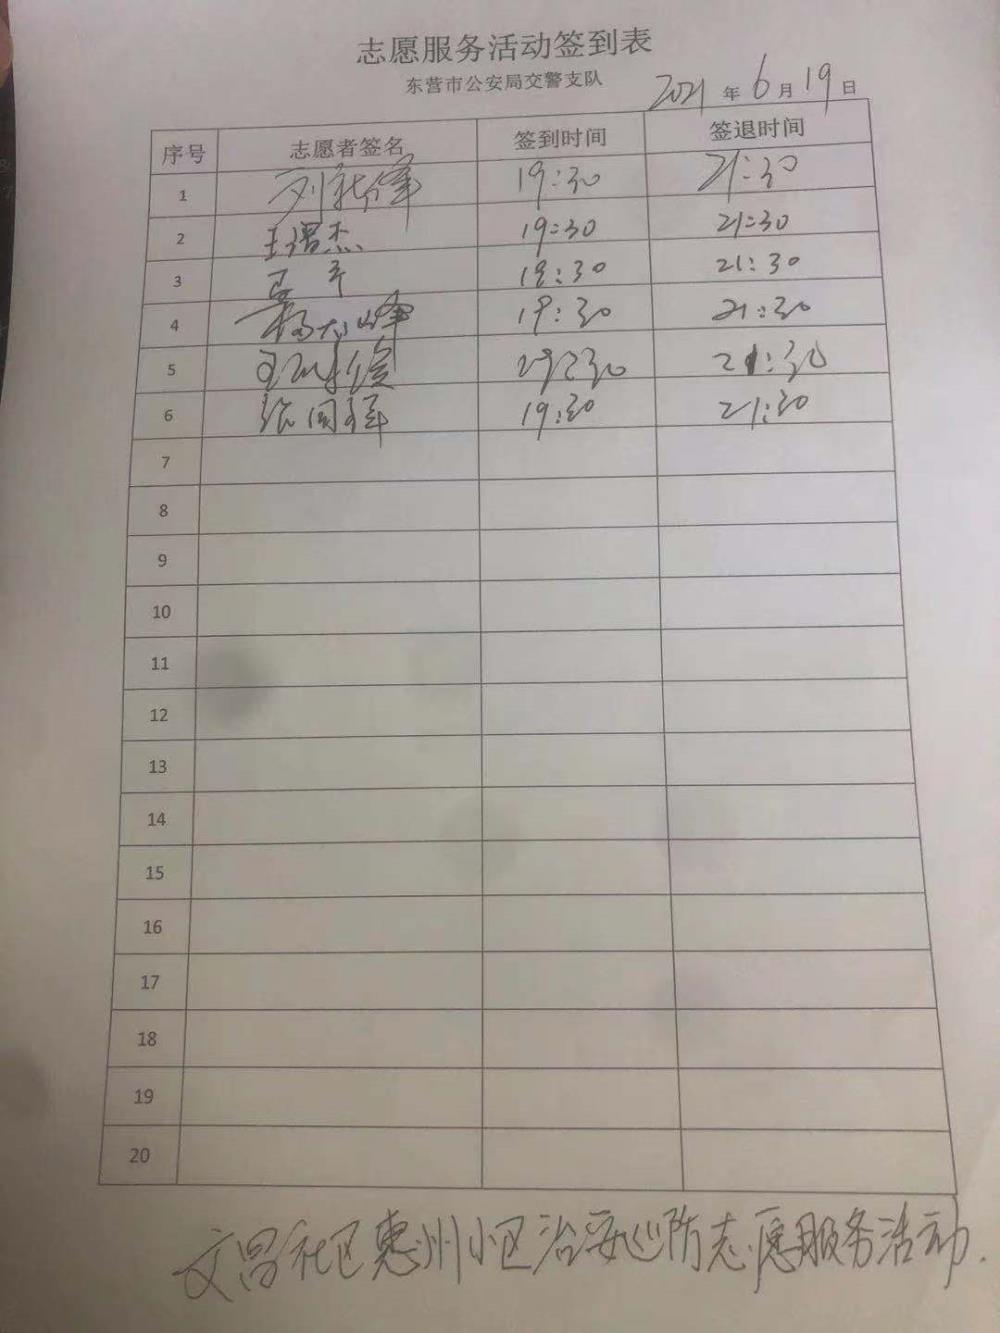 志愿服务活动签到表
东营市公安局交警支队
2021 年 6 月 19 日
序号 志愿者签名 签到时间 签退时间
1 刘 峰 19:30 21:30
2 王 杰 19:30 21:30
3 19:30 21:30
4 峰 19:30 21:30
5 王 俊 19:30 21:30
6 张国 19:30 21:30
7
8
9
10
11
12
13
14
15
16
17
18
19
20
文昌社区惠州小区治安巡防志愿服务活动.